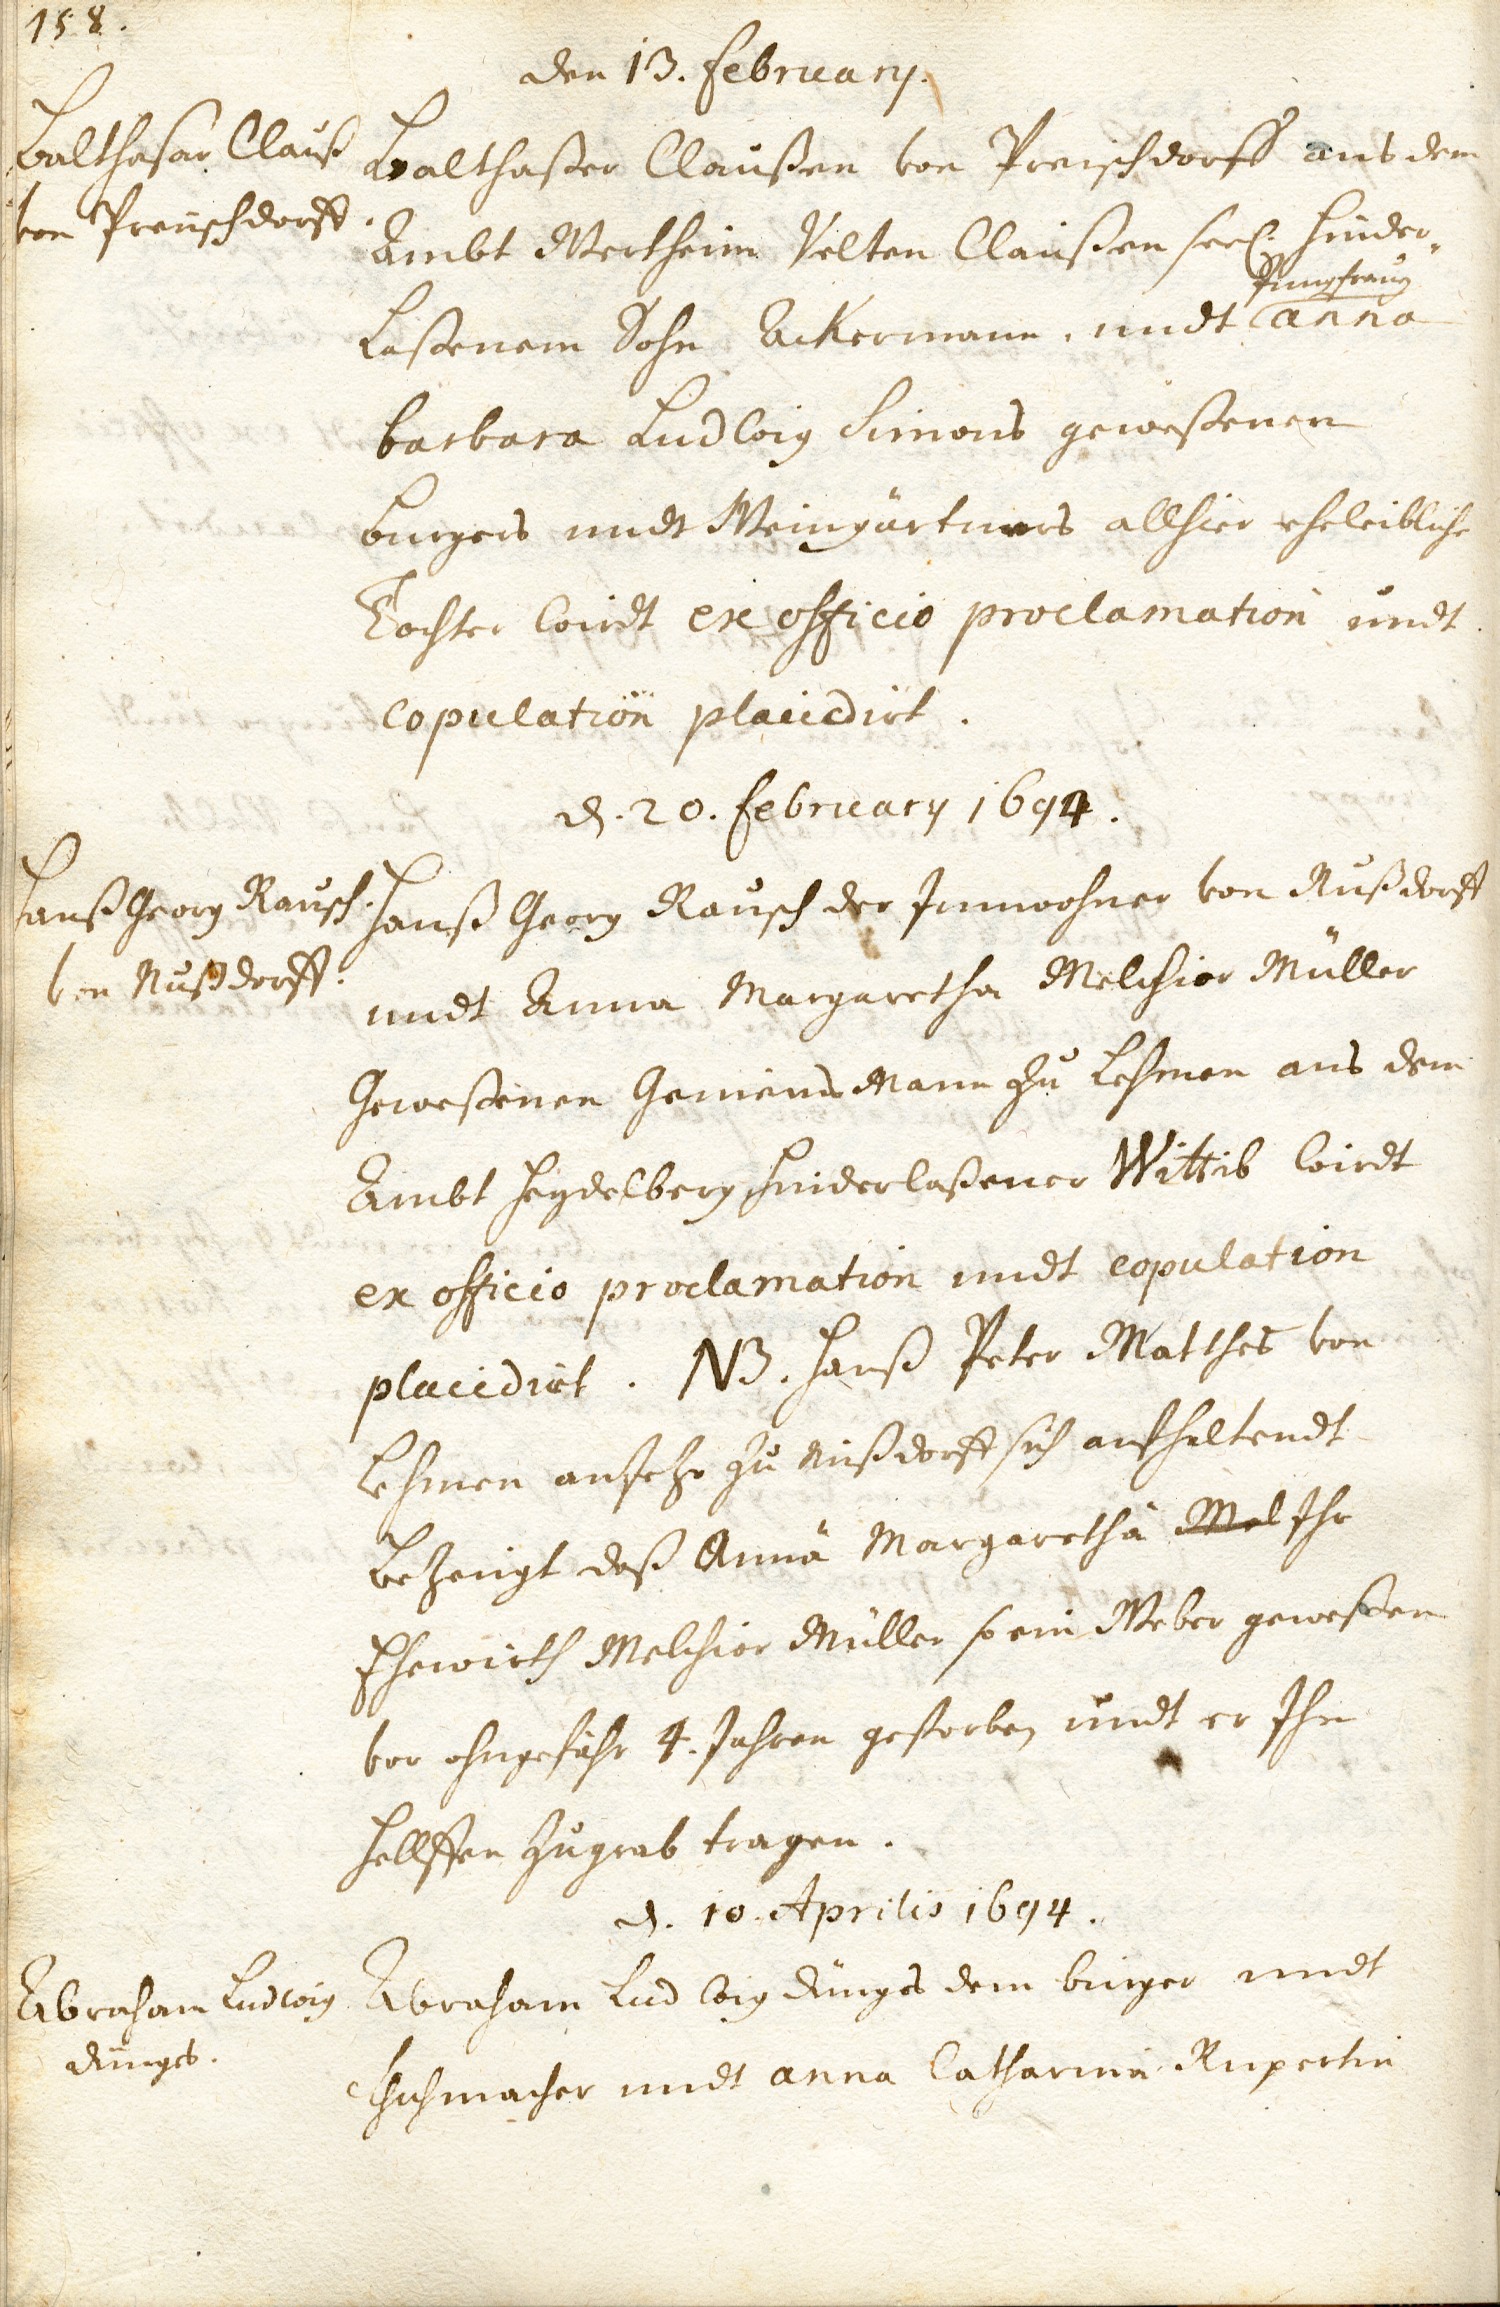 158.
den 13. February.
Balthasar Clauß
von Preuschdorff.
Balthaßer Claußen von Preuschdorff aus dem
Ambt Wertheim Velten Claußen seel. hinder-
Jungfrauen
laßenem Sohn Ackermann, undt anna
barbara Ludwig Simons geweßenen
burgers undt Weingärtners allhier eheleibliche
Tochter wirdt ex officio proclamation undt
copulation placidirt.
d. 20. February 1694.
Hanß Georg Rausch.
von Nußdorff.
Hanß Georg Rausch der Innwohner von Nußdorff
undt Anna Margaretha Melchior Müller
Geweßenen Gemeins Mann zu Lehmen aus dem
Ambt Heydelberg hinderlaßener Wittib wirdt
ex officio proclamation undt copulation
placidirt. NB. Hanß Peter Matthes von
Lehmen anjetzo zu Nußdorff sich aufhaltendt
bezeugt daß Anna Margaretha Mel Ihr
Ehewirth Melchior Müller so ein Weber geweßen
vor ohngefähr 4. Jahren gestorben undt er Ihn
hellffen zu grab tragen.
d. 10. Aprilis 1694.
Abraham Ludwig
dünges.
Abraham Ludwig dünges dem burger undt
Schuhmacher undt anna Catharina Rupertin